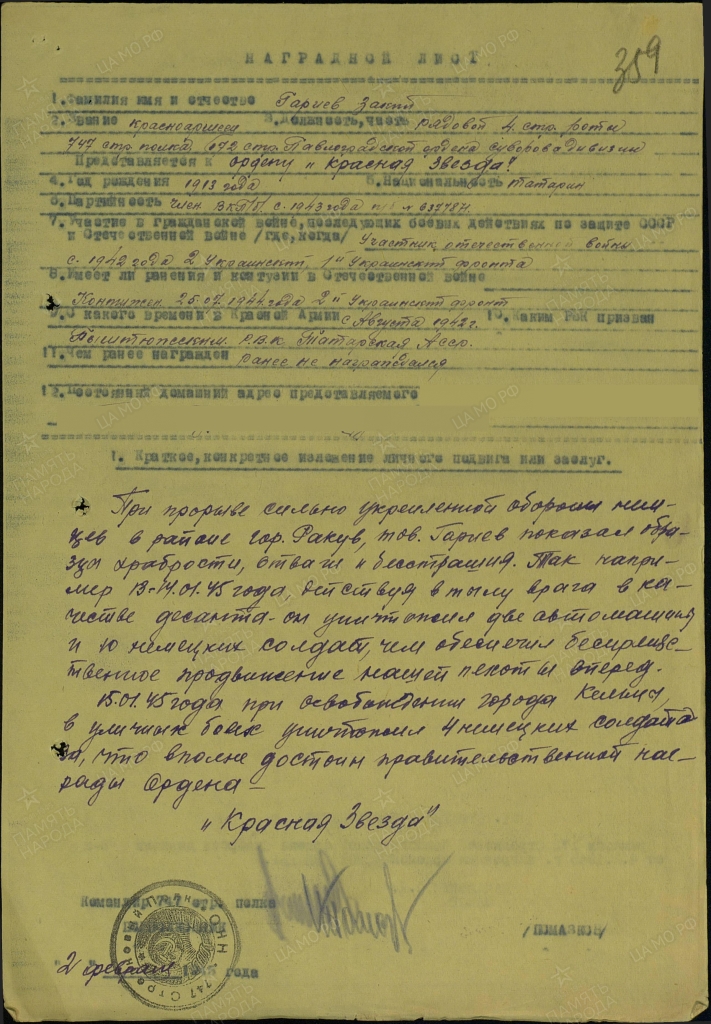 359
НАГРАДНОЙ ЛИСТ
1. Фамилия имя и отчество Гариев Закий
2. Звание красноармеец 3. Должность, часть рядовой 4. стр. роты
747 стр. полка 172 стр. Павлоградской ордена Суворова дивизии
Представляется к ордену "Красная Звезда"
4. Год рождения 1913 года 5. Национальность татарин
6. Партийность член ВКП/б. с 1943 года п/б № 6377871
7. Участие в гражданской войне, последующих боевых действиях по защите СССР
и Отечественной войне /где, когда/ Участник отечественной войны
с 1942 года 2 Украинский, 1й Украинский фронта
8. Имеет ли ранения и контузии в Отечественной войне
Контужен 25.07.1944 года 2й Украинский фронт
9. С какого времени в Красной Армии с Августа 1942 г. 10. Каким РВК призван
Р.В.К. Татарская Асср.
11. Чем ранее награжден ранее не награждался
12. Постоянный домашний адрес представляемого
1. Краткое, конкретное изложение личного подвига или заслуг.
При прорыве сильно укрепленной обороны нем-
цев в районе гор. Ракув, тов. Гариев показал обра-
зцы храбрости, отваги и бесстрашия. Так напри-
мер 13-14.01.45 года, действуя в тылу врага в ка-
честве десанта - он уничтожил две автомашины
и 10 немецких солдат, чем обеспечил беспрепят-
ственное продвижение нашей пехоты вперед.
15.01.45 года при освобождении города Кельцы,
в уличных боях уничтожил 4 немецких солдата
за, что вполне достоин правительственной наг-
рады Ордена -
"Красная Звезда"
Командир 747 стр. полка
/ПОМАЗКОВ/
"2" февраля 1945 года
747 Стрелковый Полк